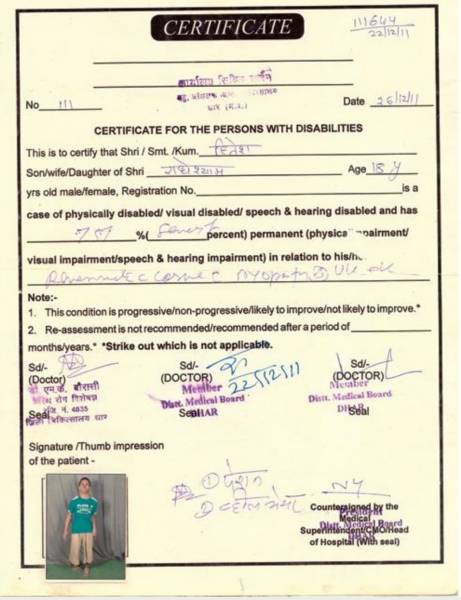 CERTIFICATE
111644
22/12/11
कार्यालय सिविल सर्जन
No 111
Date 26/12/11
CERTIFICATE FOR THE PERSONS WITH DISABILITIES
This is to certify that Shri / Smt. /Kum. हितेश
Son/wife/Daughter of Shri राधेश्याम Age 18 y
yrs old male/female, Registration No. is a
case of physically disabled/ visual disabled/ speech & hearing disabled and has
%( percent) permanent (physical impairment/
visual impairment/speech & hearing impairment) in relation to his/h
Note:-
1. This condition is progressive/non-progressive/likely to improve/not likely to improve.*
2. Re-assessment is not recommended/recommended after a period of
months/years.* *Strike out which is not applicable.
Sd/- Sd/- Sd/-
(Doctor) (DOCTOR) (DOCTOR)
22/12/11
एम.के. बौरासी Member Member
रोग विशेषज्ञ Distt. Medical Board Distt. Medical Board
नं. 4835 DHAR DHAR
Seal Seal Seal
जिला चिकित्सालय धार
Signature /Thumb impression
of the patient -
Countersigned by the
President
Medical
Distt. Medical Board
Superintendent/CMO/Head
DHAR
of Hospital (With seal)